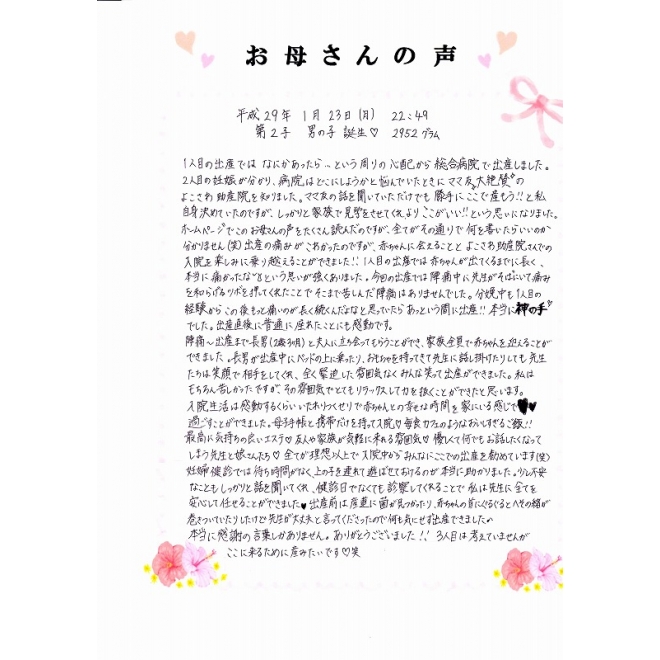 お母さんの声
平成29年 1月23日(月) 22:49
第2子 男の子 誕生♡ 2952グラム
1人目の出産では なにかあったら…という周りの心配から総合病院で出産しました。
2人目の妊娠が分かり、病院はどこにしようかと悩んでいたときにママ友"大絶賛"の
よこさわ助産院を知りました。ママ友の話を聞いていただけでも勝手にここで産もう!!と私
自身決めていたのですが、しっかりと家族で見学をさせてくれ、よりここがいい!!という思いになりました。
ホームページでこのお母さんの声をたくさん読んだのですが、全てがその通りで何を書いたらいいのか
分かりません(笑)出産の痛みがこわかったのですが、赤ちゃんに会えることと よこさわ助産院さんでの
入院を楽しみに乗り越えることができました!!1人目の出産では赤ちゃんが出てくるまでに長く、
本当に痛かったな…という思いが強くありました。今回の出産では陣痛中に先生がそばにいて痛み
を和らげるツボを押してくれたことで そこまで苦しんだ陣痛はありませんでした。分娩中も1人目の
経験から この後もっと痛いのが長く続くんだよなと思っていたら あっという間に出産!!本当に神の手
でした。出産直後に普通に座れたことにも感動です。
陣痛〜出産まで長男(2歳3ヶ月)と夫に立ち会ってもらうことができ、家族全員で赤ちゃんを迎えることが
できました。長男が出産中にベッドの上に乗ったり、おもちゃを持ってきて先生に話し掛けたりしても先生
たちは笑顔で相手をしてくれ、全く緊迫した雰囲気なくみんな笑って出産ができました。私は
もちろん苦しかったですが、その雰囲気でとてもリラックスして力を抜くことができたと思います。
入院生活は感動するくらいいたれりつくせりで赤ちゃんとの幸せな時間を家にいる感じで♥♥
過ごすことができました。母子手帳と携帯だけを持って入院♡毎食カフェのようなおいしすぎるご飯!!
最高に気持ちの良いエステ♡友人や家族が気軽に来れる雰囲気♡優しくて何でもお話したくなって
しまう先生と娘さんたち♡全てが理想以上で入院中からみんなにここでの出産を勧めています(笑)
妊婦健診では待ち時間がなく、上の子を連れて遊ばせておけるのが本当に助かりました。少し不安
なこともしっかりと話を聞いてくれ、健診日でなくても診察してくれることで 私は先生に全てを
安心して任せることができました♥出産前は産道に菌が見つかったり、赤ちゃんの首にぐるぐるとへその緒が
巻きついていたりしたけど先生が大丈夫と言ってくださったので何も気にせず出産できました
本当に感謝の言葉しかありません。ありがとうございました!!3人目は考えていませんが
ここに来るために産みたいです♡笑